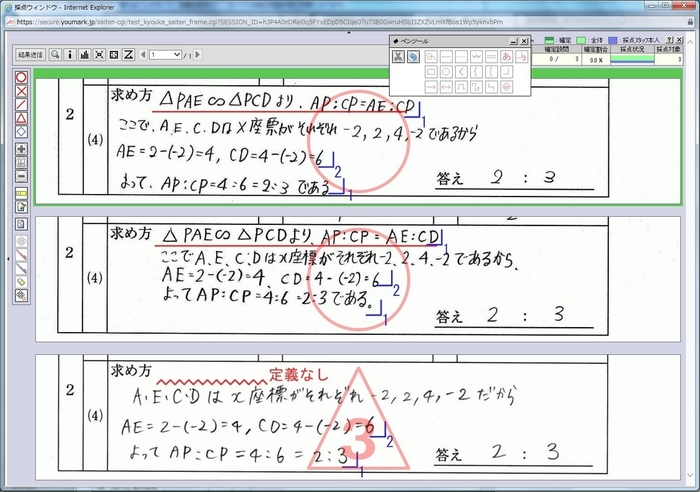 採点ウィンドウ - Internet Explorer
結果送信
1
/1
ペンツール
:確定
:全体
:採点スタッフ本人
確定設問
確定割合
採点状況
採点対象
0 / 3
0.0 %
3
2
(4)
求め方 △PAE∽△PCDより、AP:CP=AE:CD 1
ここで、A、E、C、Dはx座標がそれぞれ-2, 2, 4, -2であるから
AE=2-(-2)=4, CD=4-(-2)=6 2
よって、AP:CP=4:6=2:3である 1
答え 2 : 3
2
(4)
求め方 △PAE∽△PCDより、AP:CP=AE:CD 1
ここでA、E、C、Dはx座標がそれぞれ-2、2、4、-2であるから、
AE=2-(-2)=4、CD=4-(-2)=6 2
よってAP:CP=4:6=2:3である。 1
答え 2 : 3
2
(4)
求め方
定義なし
A、E、C、Dはx座標がそれぞれ-2, 2, 4, -2だから
AE=2-(-2)=4, CD=4-(-2)=6 2
よってAP:CP=4:6=2:3 1
3
答え 2 : 3